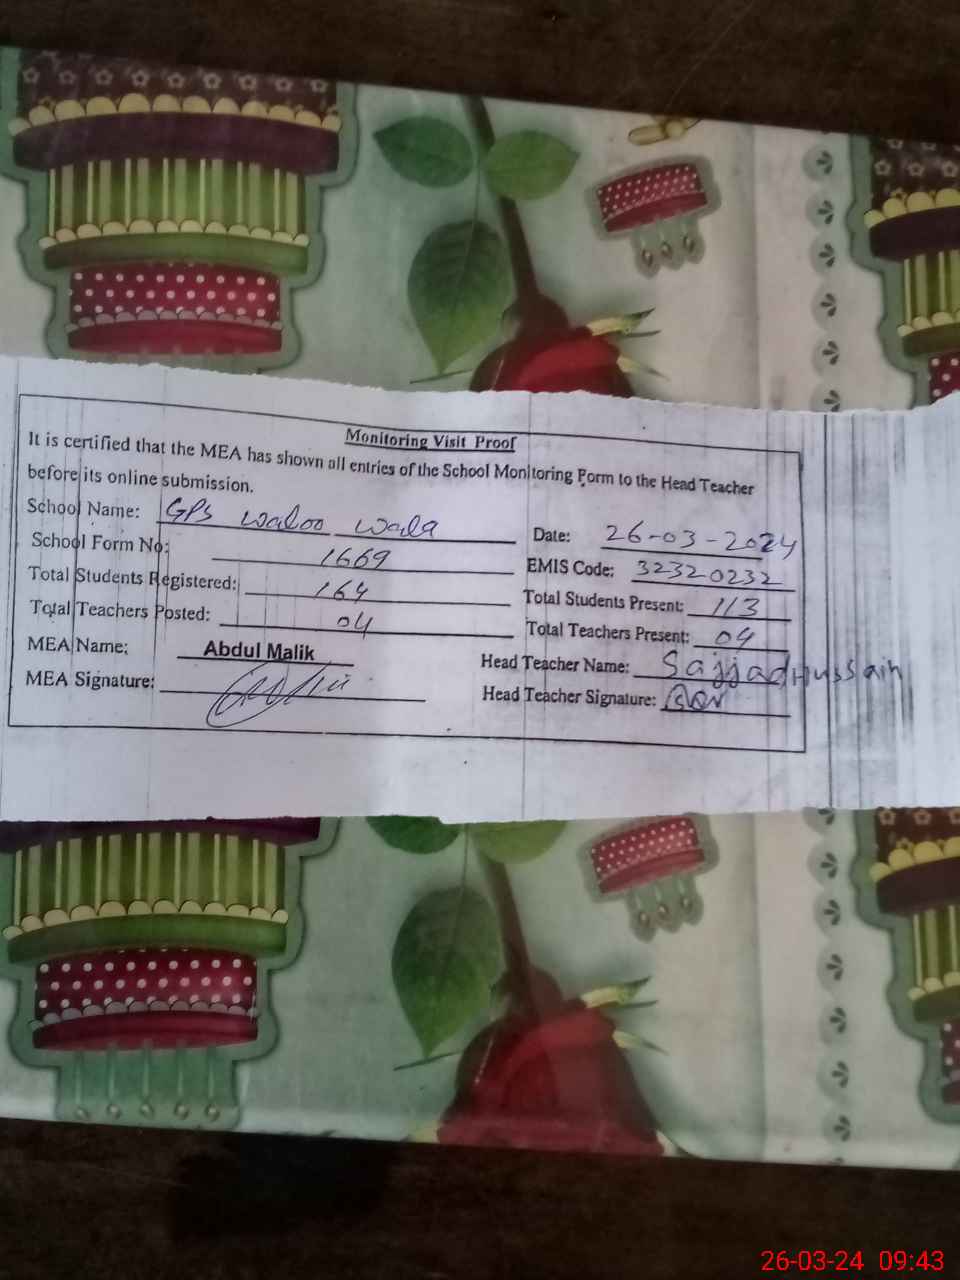 Monitoring Visit Proof
It is certified that the MEA has shown all entries of the School Monitoring Form to the Head Teacher
before its online submission.
School Name: GPS Waloo Wala
Date: 26-03-2024
School Form No: 1669
EMIS Code: 32320232
Total Students Registered: 164
Total Students Present: 113
Total Teachers Posted: 04
Total Teachers Present: 04
MEA Name: Abdul Malik
Head Teacher Name: Sajjad Hussain
MEA Signature:
Head Teacher Signature:
26-03-24 09:43